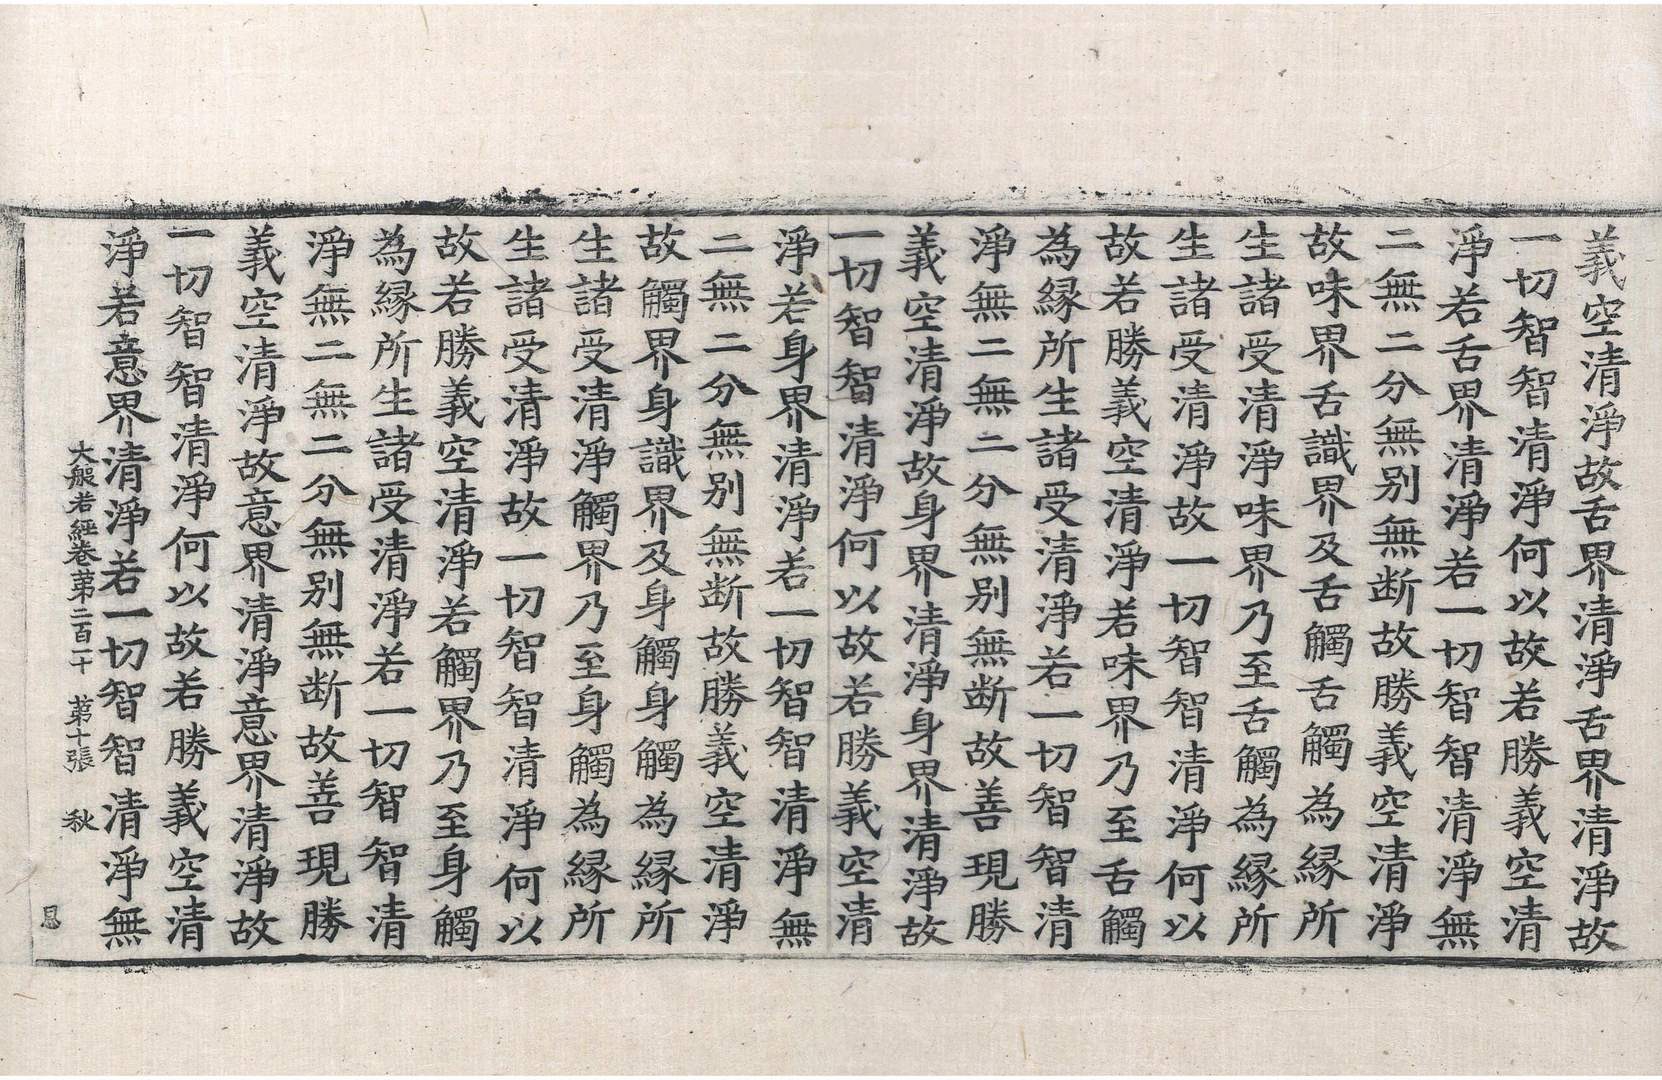 義空清淨故舌界清淨舌界清淨故
一切智智清淨何以故若勝義空清
淨若舌界清淨若一切智智清淨無
二無二分無别無断故勝義空清淨
故味界舌識界及舌觸舌觸為縁所
生諸受清淨味界乃至舌觸為縁所
生諸受清淨故一切智智清淨何以
故若勝義空清淨若味界乃至舌觸
為縁所生諸受清淨若一切智智清
淨無二無二分無别無断故善現勝
義空清淨故身界清淨身界清淨故
一切智智清淨何以故若勝義空清
淨若身界清淨若一切智智清淨無
二無二分無别無断故勝義空清淨
故觸界身識界及身觸身觸為縁所
生諸受清淨觸界乃至身觸為縁所
生諸受清淨故一切智智清淨何以
故若勝義空清淨若觸界乃至身觸
為縁所生諸受清淨若一切智智清
淨無二無二分無别無断故善現勝
義空清淨故意界清淨意界清淨故
一切智智清淨何以故若勝義空清
淨若意界清淨若一切智智清淨無
大般若經卷第二百一十 第十張 秋